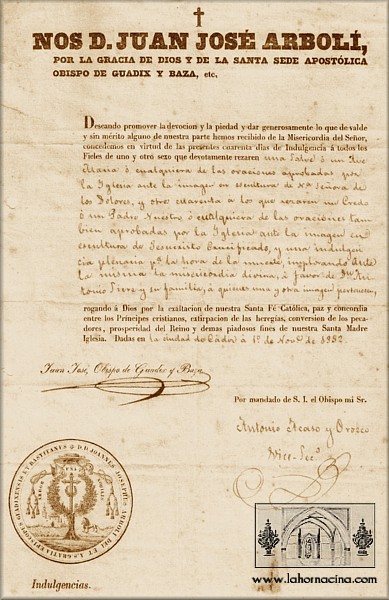 NOS D. JUAN JOSÉ ARBOLÍ,
POR LA GRACIA DE DIOS Y DE LA SANTA SEDE APOSTÓLICA
OBISPO DE GUADIX Y BAZA, etc.
Deseando promover la devocion y la piedad y dar generosamente lo que de valde
y sin mérito alguno de nuestra parte hemos recibido de la Misericordia del Señor,
concedemos en virtud de las presentes cuarenta dias de Indulgencia á todos los
Fieles de uno y otro sexo que devotamente rezaren una Salve ó un Ave
Maria ó cualquiera de las oraciones aprobadas por
la Iglesia ante la imagen en escultura de Nª Señora de
los Dolores, y otros cuarenta á los que rezaren un Credo
ó un Padre Nuestro ó cualquiera de las oraciones tam
bien aprobadas por la Iglesia ante la imagen en
escultura de Jesucristo Crucificado, y una indulgen
cia plenaria pª la hora de la muerte, implorando ante
la misma la misericordia divina, á favor de Dn. An
tonio y su familia, á quienes una y otra imagen pertenecen,
rogando á Dios por la exaltacion de nuestra Santa Fé Católica, paz y concordia
entre los Príncipes cristianos, extirpacion de las heregías, conversion de los peca-
dores, prosperidad del Reino y demas piadosos fines de nuestra Santa Madre
Iglesia. Dadas en la ciudad de Cádiz á 1º de Novе. de 1852.
Juan José, Obispo de Guadix y Baza
Por mandado de S. I. el Obispo mi Sr.
Antonio Acaso y Orozco
Vice-Secº
Indulgencias.
www.lahornacina.com